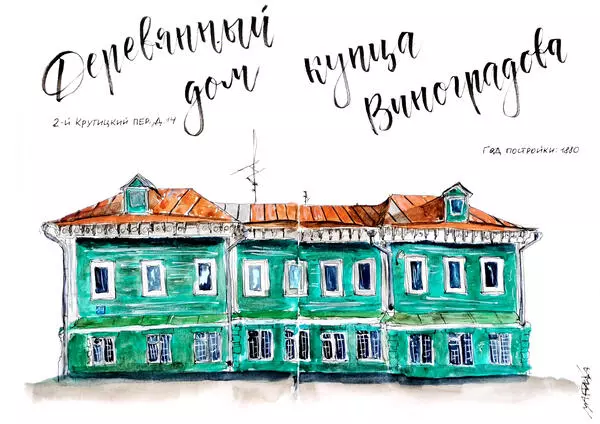 Деревянный
дом
купца
Виноградова
2-й Крутицкий пер., д. 14
Год постройки: 1880